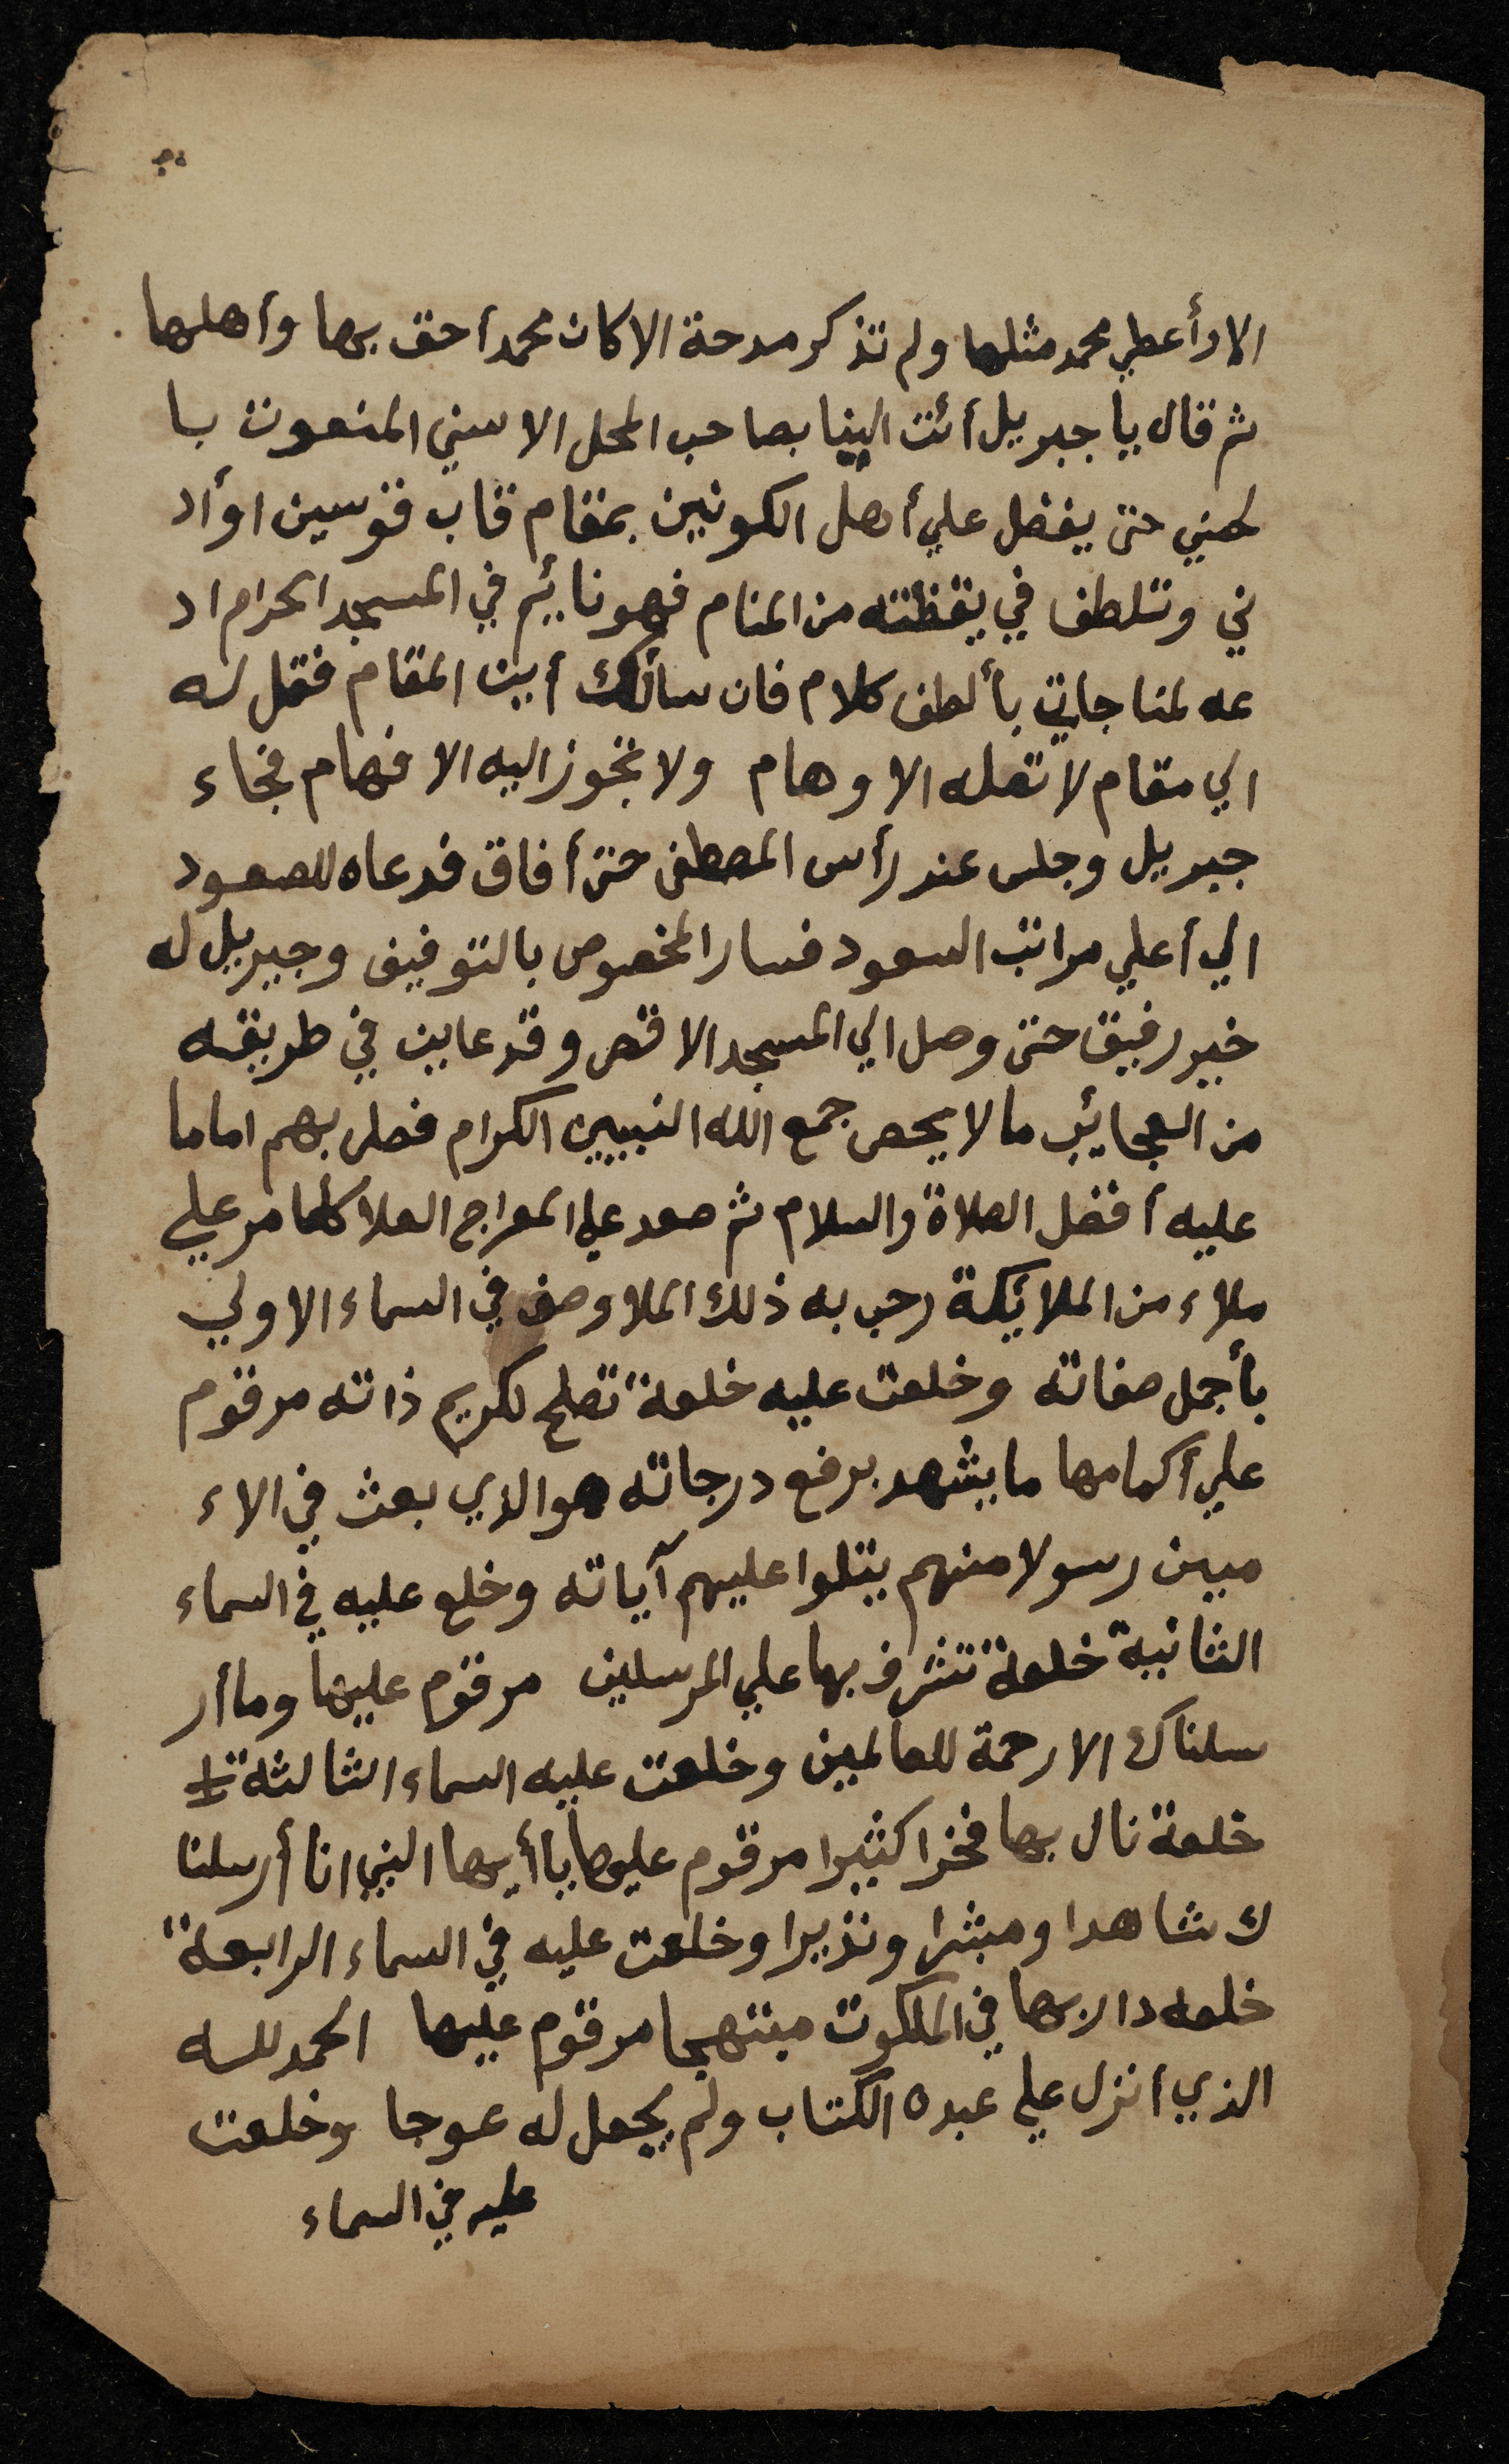 الا وأعطي محمد مثلها ولم تذكر مدحة الا كان محمد أحق بها وأهلها
ثم قال يا جبريل أئت الينا بصاحب المحل الاسني المنعوت با
لحني حتى يفضل علي أهل الكونين بمقام قاب قوسين او أد
ني وتلطف في يقظته من المنام فهو نائيم في المسجد الحرام اد
عه لمناجاتي بألطف كلام فان سألك أين المقام فقل له
الي مقام لا تصله الاوهام ولا تجوز اليه الافهام فجاء
جبريل وجلس عند رأس المصطفى حتى أفاق فدعاه للصعود
الي أعلي مراتب السعود فسار المخصوص بالتوفيق وجبريل له
خير رفيق حتى وصل الي المسجد الاقصى وقد عاين في طريقه
من العجائيب ما لا يحصى جمع الله النبيين الكرام فصلى بهم اماما
عليه أفضل الصلاة والسلام ثم صعد علي المعراج العلا كلما مر علي
ملاء من الملائيكة رحب به ذلك الملا وصف في السماء الاولي
بأجمل صفاته وخلعت عليه خلعة تصلح لكريم ذاته مرقوم
علي أكمامها ما يشهد برفع درجاته هو الذي بعث في الاء
ميين رسولا منهم يتلوا عليهم آياته وخلع عليه في السماء
الثانية خلعة تشرف بها علي المرسلين مرقوم عليها وما أر
سلناك الا رحمة للعالمين وخلعت عليه السماء الثالثة
خلعة نال بها فخرا كثيرا مرقوم عليها يا أيها النبي انا أرسلنا
ك شاهدا ومبشرا ونذيرا وخلعت عليه في السماء الرابعة
خلعه دار بها في الملكوت مبتهجا مرقوم عليها الحمد لله
الذي أنزل علي عبده الكتاب ولم يجعل له عوجا وخلعت
عليه في السماء